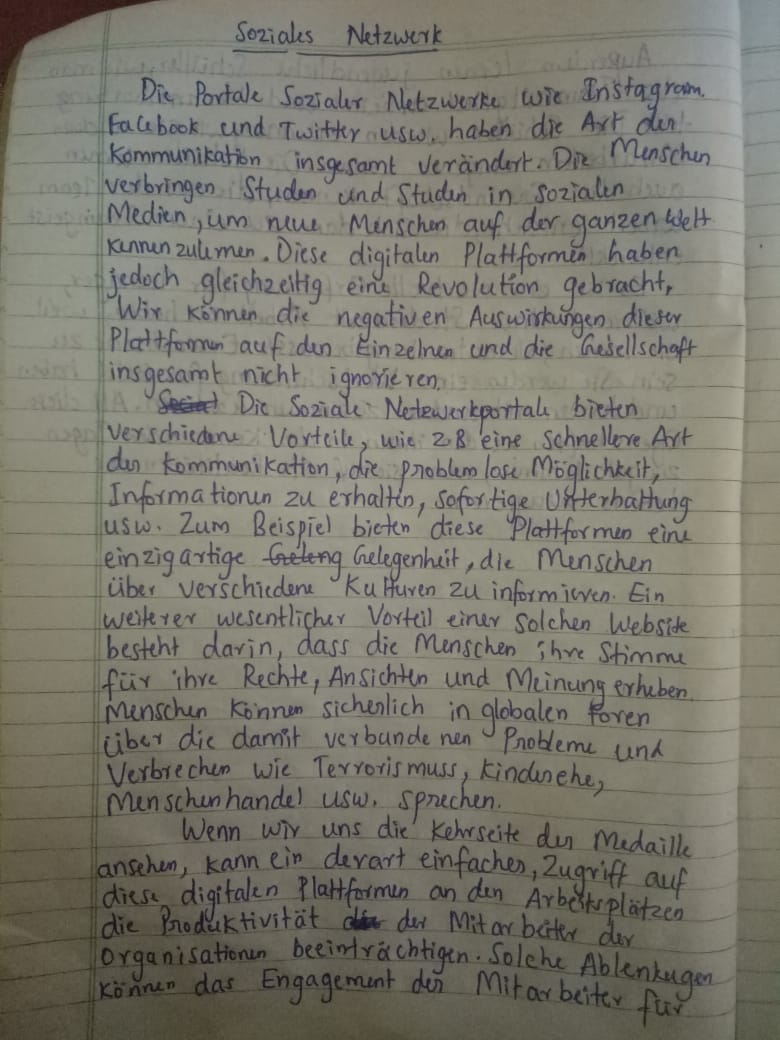 Soziales Netzwerk
Die Portale Sozialer Netzwerke wie Instagram,
Facebook und Twitter usw. haben die Art der
Kommunikation insgesamt verändert. Die Menschen
verbringen Studen und Studen in sozialen
Medien, um neue Menschen auf der ganzen Welt
kennenzulernen. Diese digitalen Plattformen haben
jedoch gleichzeitig eine Revolution gebracht,
Wir können die negativen Auswirkungen dieser
Plattformen auf den Einzelnen und die Gesellschaft
insgesamt nicht ignorieren.
Die Soziale Netzwerkportale bieten
verschiedene Vorteile, wie z.B eine schnellere Art
der Kommunikation, die problemlose Möglichkeit,
Informationen zu erhalten, sofortige Unterhaltung
usw. Zum Beispiel bieten diese Plattformen eine
einzigartige Gelegenheit, die Menschen
über verschiedene Kulturen zu informieren. Ein
weiterer wesentlicher Vorteil einer solchen Website
besteht darin, dass die Menschen ihre Stimme
für ihre Rechte, Ansichten und Meinung erheben.
Menschen können sicherlich in globalen Foren
über die damit verbundenen Probleme und
Verbrechen wie Terrorismuss, Kinderehe,
Menschenhandel usw. sprechen.
Wenn wir uns die Kehrseite der Medaille
ansehen, kann ein derart einfacher, Zugriff auf
diese digitalen Plattformen an den Arbeitsplätzen
die Produktivität der Mitarbeiter der
Organisationen beeinträchtigen. Solche Ablenkugen
können das Engagement der Mitarbeiter für